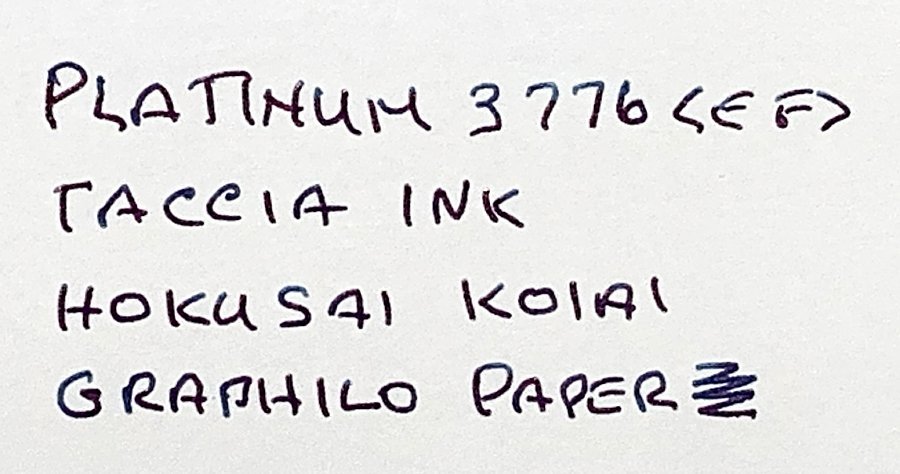 PLATINUM 3776 <EF>
TACCIA INK
HOKUSAI KOIAI
GRAPHILO PAPER